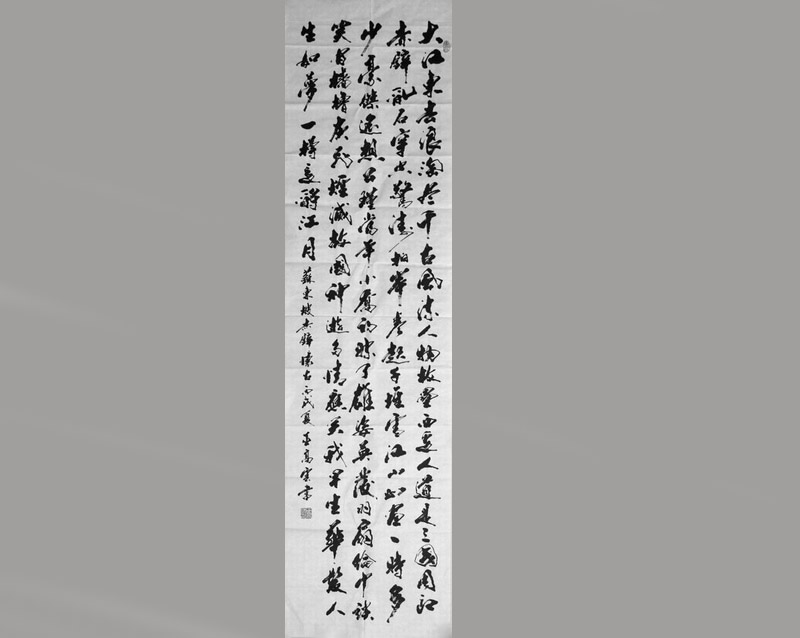 大江東去浪淘盡千古風流人物故壘西邊人道是三國周郎
赤壁亂石穿空驚濤拍岸卷起千堆雪江山如畫一時多
少豪傑遙想公瑾當年小喬初嫁了雄姿英發羽扇綸巾談
笑間檣櫓灰飛煙滅故國神遊多情應笑我早生華髮人
生如夢一樽還酹江月 蘇東坡赤壁懷古丙戌夏